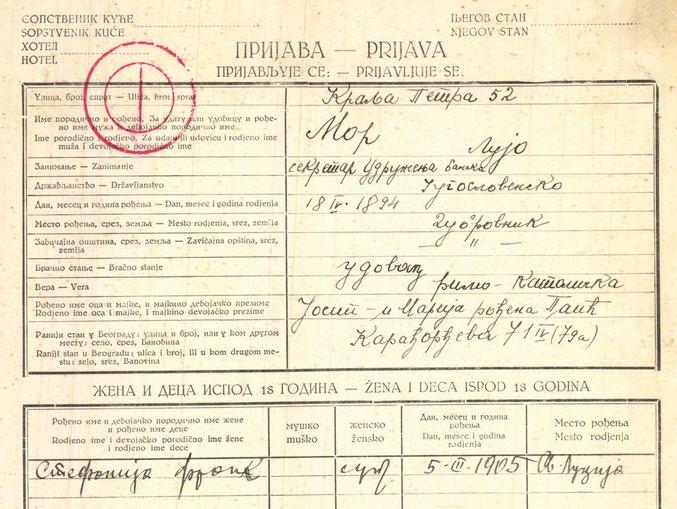 СОПСТВЕНИК КУЋЕ
SOPSTVENIK KUĆE
ХОТЕЛ
HOTEL
ЊЕГОВ СТАН
NJEGOV STAN
ПРИЈАВА — PRIJAVA
ПРИЈАВЉУЈЕ СЕ: — PRIJAVLJUJE SE:
Улица, број, спрат — Ulica, broj, sprat Краља Петра 52
Име породично и рођено. За удату или удовицу и рође-
но име мужа и девојачко породично име
Ime porodično i rodjeno. Za udatu ili udovicu i rodjeno ime
muža i devojačko porodično ime
Мор Лујо
Занимање — Zanimanje секретар Удружења банака
Држављанство — Državljanstvo Југословенско
Дан, месец и година рођења — Dan, mesec i godina rodjenja 18 IV. 1894
Место рођења, срез, земља — Mesto rodjenja, srez, zemlja Дубровник
Завичајна општина, срез, земља — Zavičajna opština, srez,
zemlja
— " —
Брачно стање — Bračno stanje удовац
Вера — Vera римо-католичка
Рођено име оца и мајке, и мајкино девојачко презиме
Rodjeno ime oca i majke, i majkino devojačko prezime
Јосип - и Марија рођена
Ранији стан у Београду: улица и број, или у ком другом
месту: село, срез, Бановина
Raniji stan u Beogradu: ulica i broj, ili u kom drugom me-
stu: selo, srez, Banovina
Карађорђева 71 IV (79а)
ЖЕНА И ДЕЦА ИСПОД 18 ГОДИНА — ŽENA I DECA ISPOD 18 GODINA
Рођено име и девојачко породично име жене
и рођено име деце
Rodjeno ime i devojačko porodično ime žene
i rodjeno ime dece
мушко
muško
женско
žensko
Дан, месец и година
рођења
Dan, mesec i godina
rodjenja
Место рођења
Mesto rodjenja
Стефанија Франк суп. 5-III-1905 Св. Луција